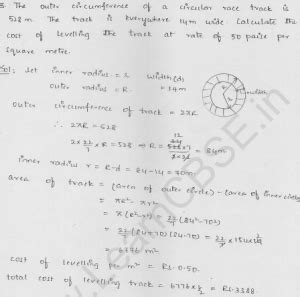 3. The outer circumference of a circular race track is
528 m. The track is everywhere 14m wide. Calculate the
cost of levelling the track at rate of 50 paise per
square metre.
Sol: Let inner radius = r width(d)
outer radius = R. = 14m
outer circumference of track = 2πR
∴ 2πR = 528
2×22/7×R = 528 ⇒ R = 528×7/2×22 = 84m
inner radius r = R-d = 84-14 = 70m
area of track = (area of outer circle) - (area of inner circle)
= πR² - πr²
= π(R²-r²) = 22/7 (84²-70²)
= 22/7 (84+70)(84-70) = 22/7 × 154×14
= 6776 m²
cost of levelling per m² = Rs.0.50.
total cost of levelling track = 6776×1/2 = Rs.3388.
www.LearnCBSE.in